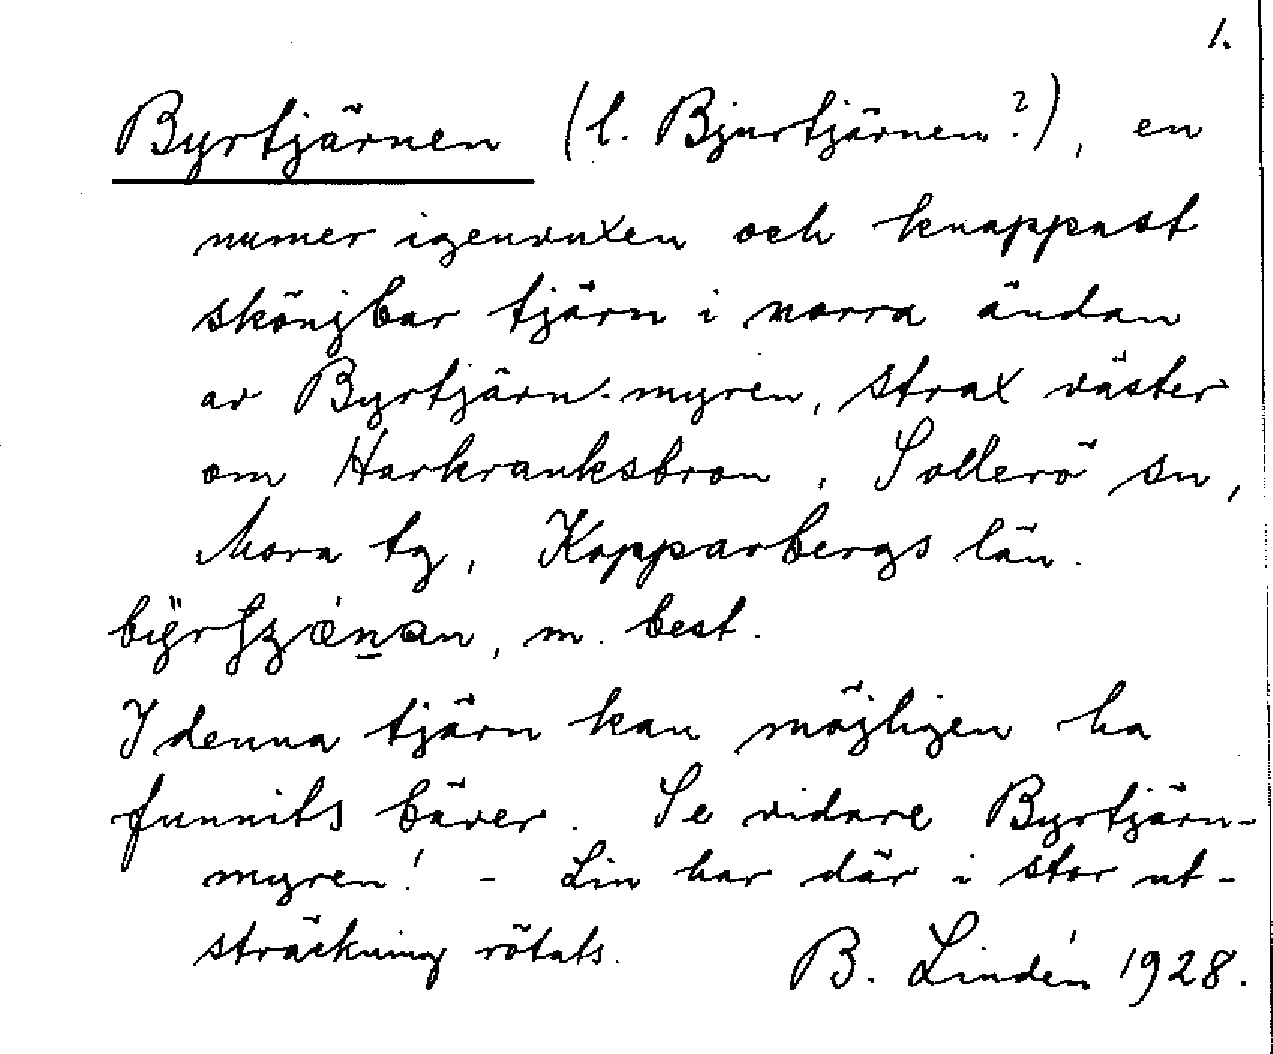 1.
Byrtjärnen (l. Bjurtjärnen?), en
numer igenvuxen och knappast
skönjbar tjärn i norra ändan
av Byrtjärn-myren, strax väster
om Harkranksbron, Sollerö sn,
Mora tg, Kopparbergs län.
m. best.
I denna tjärn kan möjligen ha
funnits bäver. Se vidare Byrtjärn-
myren! - Lin har där i stor ut-
sträckning rötats.
B. Lindén 1928.